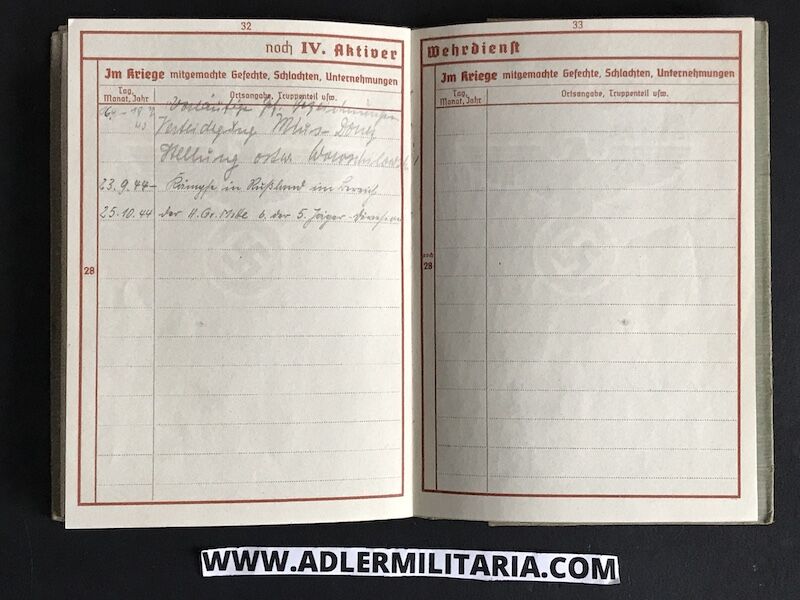 32
noch IV. Aktiver
Im Kriege mitgemachte Gefechte, Schlachten, Unternehmungen
Tag, Monat, Jahr
Ortsangabe, Truppenteil usw.
Verteidigung Mius-Donez
Stellung
23.9.44- Kämpfe in Rußland im Bereich
25.10.44 der H.Gr. Mitte b. der 5. Jäger-Division
28
33
Wehrdienst
Im Kriege mitgemachte Gefechte, Schlachten, Unternehmungen
Tag, Monat, Jahr
Ortsangabe, Truppenteil usw.
noch
28
WWW.ADLERMILITARIA.COM